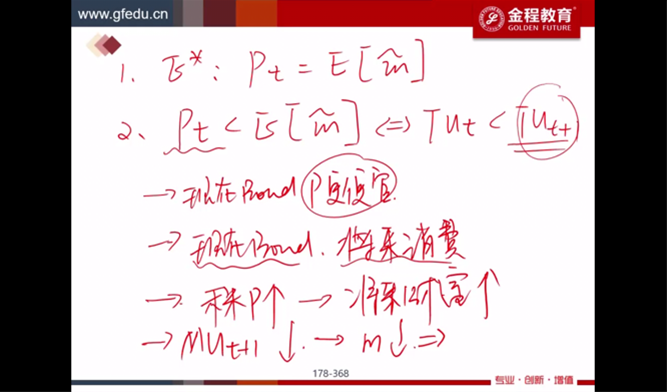 www.gfedu.cn
金程教育
GOLDEN FUTURE
1. E*: Pt = E[m̃]
2、 Pt < E[m̃] <=> TUt < TUt+1
→ 现在Bond P更便宜
→ 现在Bond. 将来消费
→ P↑ → 将来财富↑
→ MUt+1 ↓. → m↓ =>
178-368
专业·创新·增值